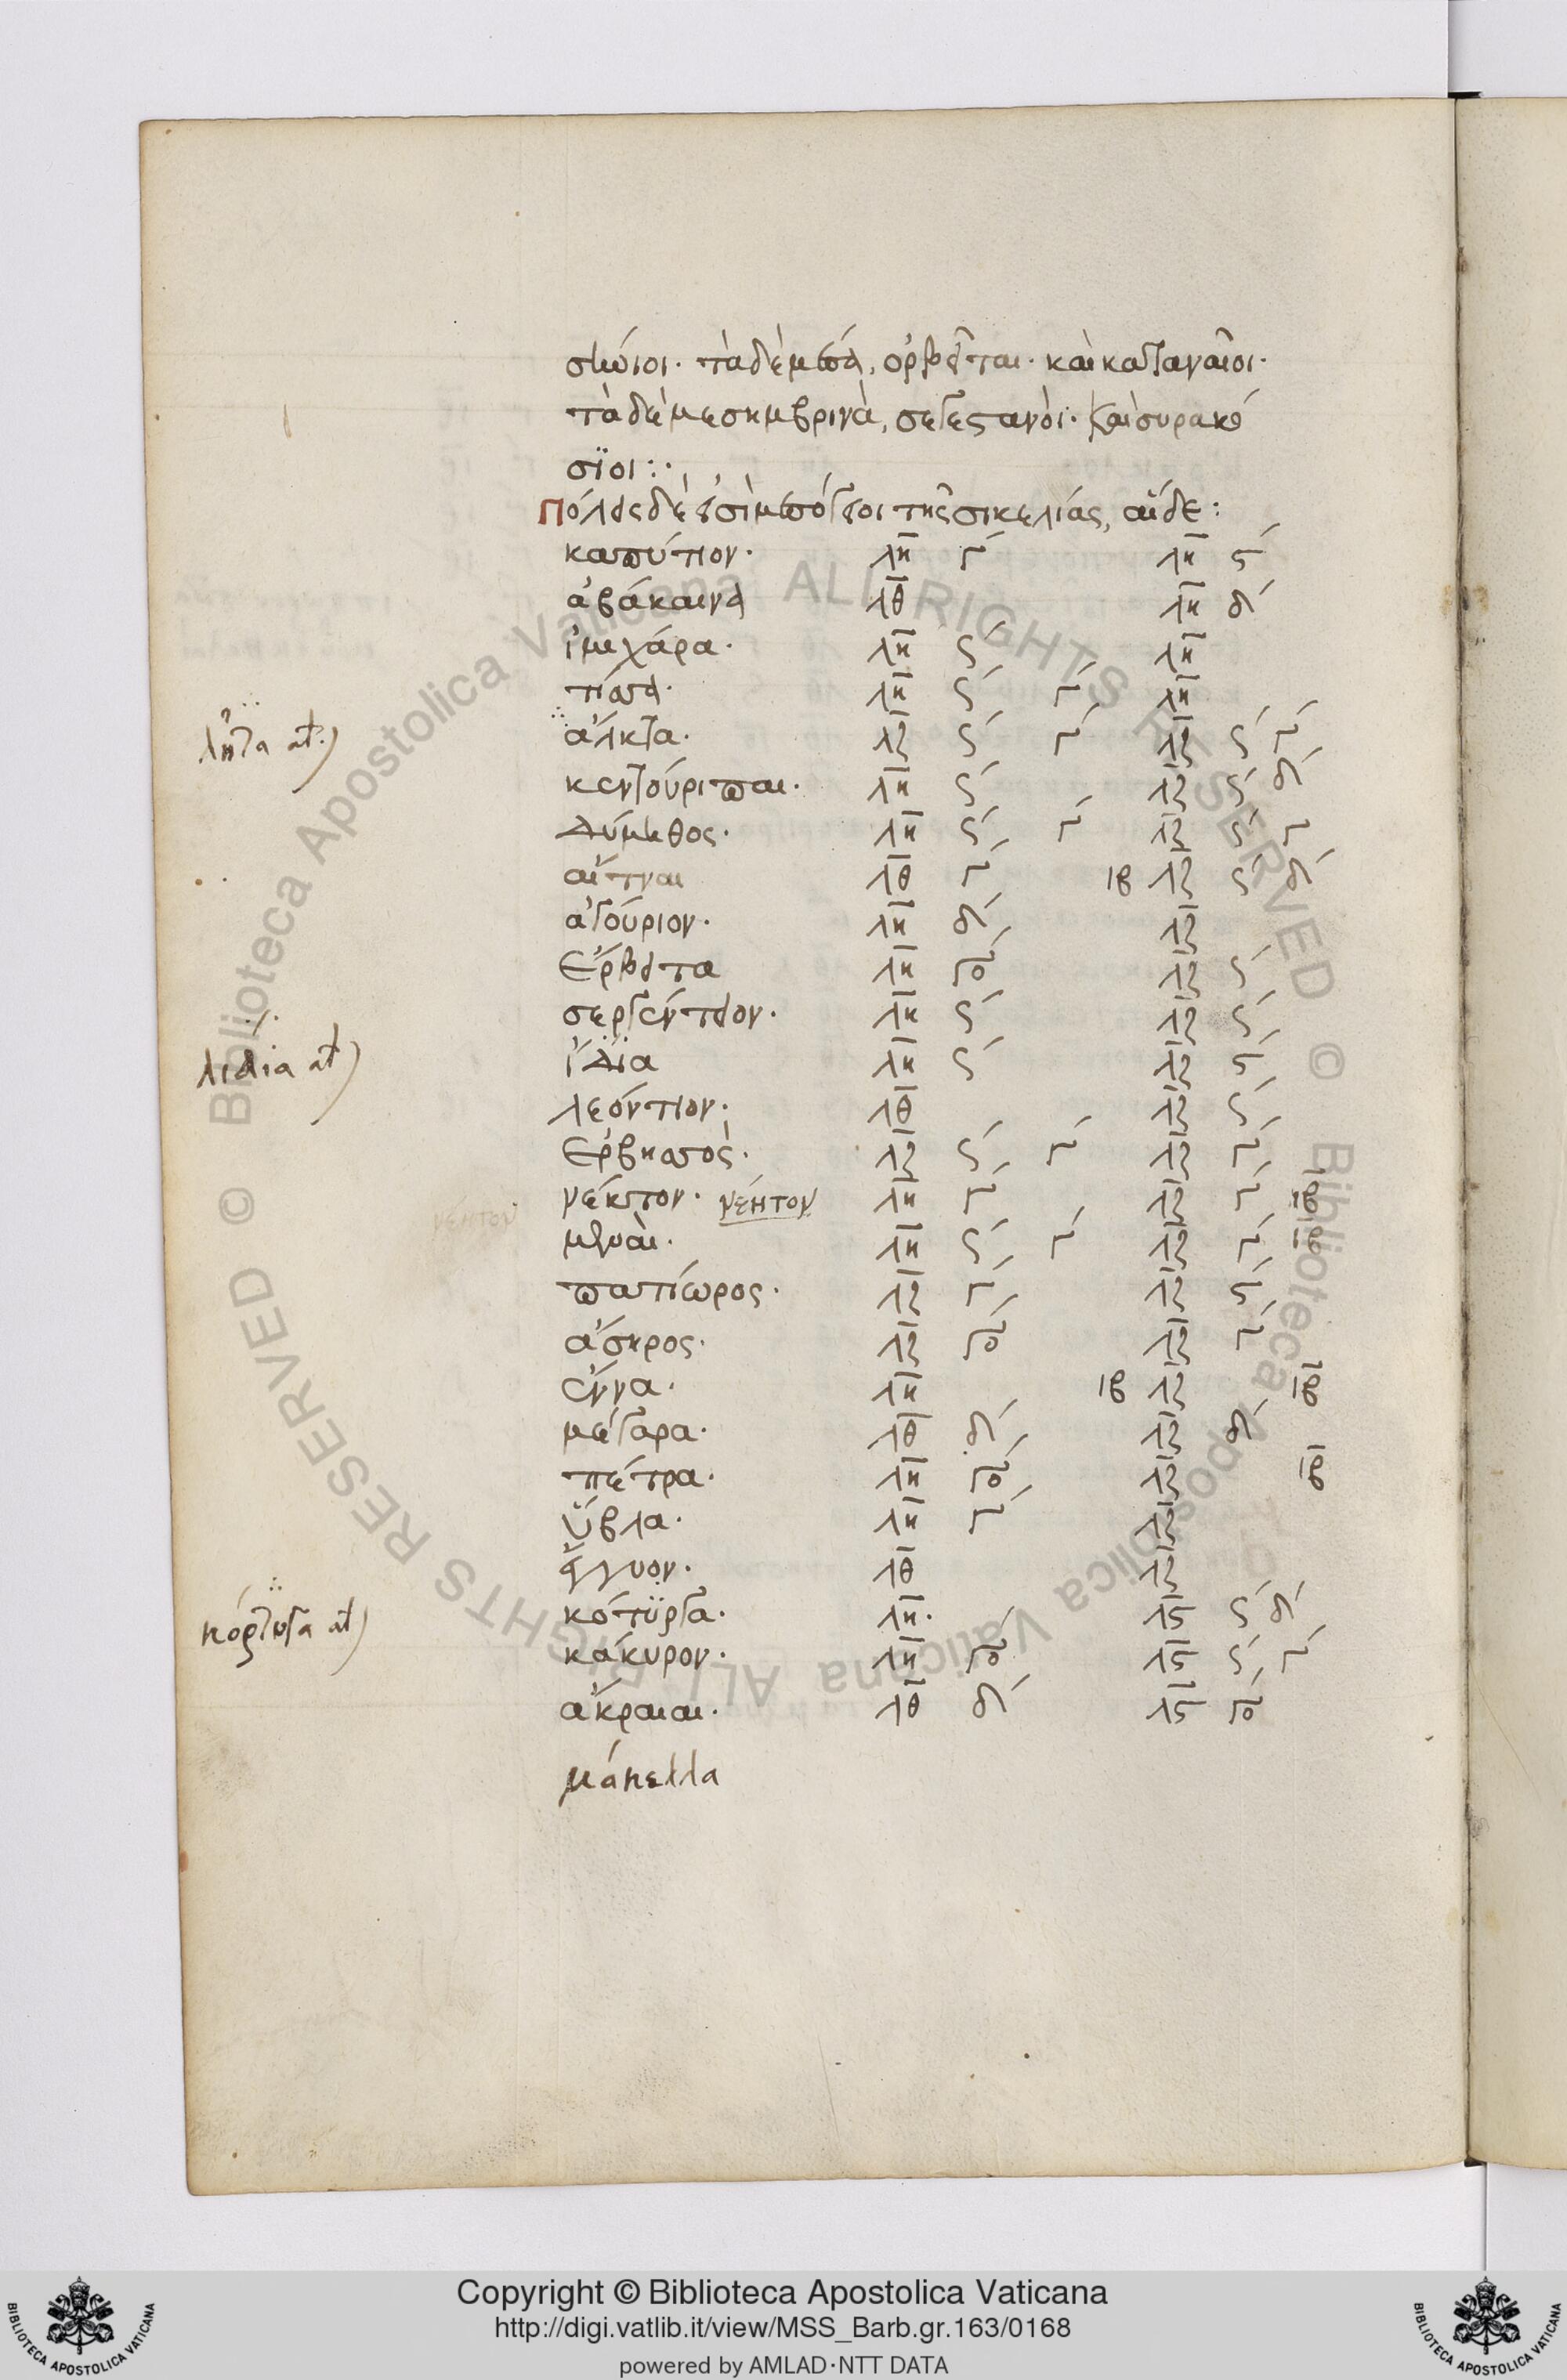 σήνιοι· τὰ δὲ μέσα, ὀρβῆται· καὶ καταναῖοι·
τὰ δὲ μεσημβρινὰ, σεγεστανοὶ· καὶ συρακό
σϊοι:·
Πόλεις δέ εἰσὶ μεσόγειοι τῆς σικελίας, αἵδε:
καπύτιον· λη γ´ λη ς´
ἀβάκαινα λθ λη δ´
ἰμιχάρα· λη ς´ λη
τίσα· λη ς´ γ´ λη
ἄλκτα· λζ ς´ γ´ λζ ς´ γ´
λῆτα
κεντούριπαι· λη ς´ λζ ς´ δ´
Δύμηθος· λη ς´ γ´ λζ ς´ γ´
αἴτναι λθ γ´ ιβ λζ ς´ δ´
ἀγούριον· λη δ´ λζ
Ἔρβιτα λη γο λζ ς´
σεργέντιον· λη ς´ λζ ς´
ἵδια λη ς´ λζ ς´
λιδία
λεόντιον· λθ λζ ς´
Ἐρβησὸς· λζ ς´ γ´ λζ γ´
νέκτον· νέητον λη γ´ λζ γ´ ιβ
νέητον
μέναι· λη ς´ γ´ λζ γ´ ιβ
πατίωρος· λζ γ´ λζ ς´
ἄσηρος· λζ γο λζ γ´
ἔννα· λη ιβ λζ ιβ
μέγαρα· λθ δ´ λζ δ´
πέτρα· λη γο λζ ιβ
ὕβλα· λη γ´ λζ
ἔγγυον· λθ λζ
κότϋργα· λη· λς ς´ δ´
κόρτυγα
κάκυρον· λη γο λς ς´ γ´
ἄκραιαι· λθ δ´ λς γο
μάκελλα
Copyright © Biblioteca Apostolica Vaticana
http://digi.vatlib.it/view/MSS_Barb.gr.163/0168
powered by AMLAD·NTT DATA
BIBLIOTECA APOSTOLICA VATICANA
BIBLIOTECA APOSTOLICA VATICANA
© Biblioteca Apostolica Vaticana ALL RIGHTS RESERVED © Biblioteca Apostolica Vaticana ALL RIGHTS RESERVED